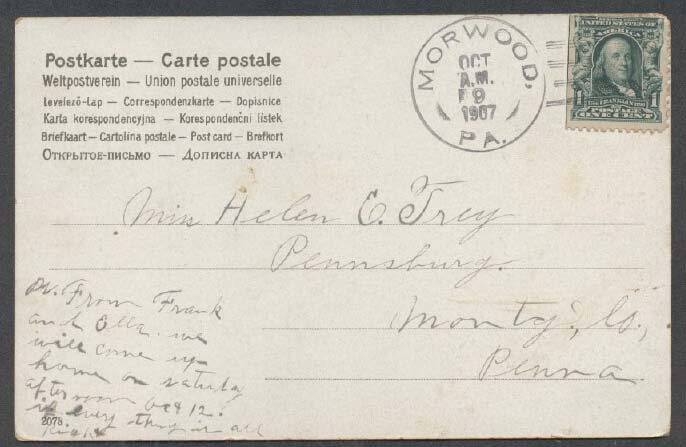 Postkarte — Carte postale
Weltpostverein — Union postale universelle
Levelező-Lap — Correspondenzkarte — Dopisnice
Karta korespondencyjna — Korespondenční lístek
Briefkaart — Cartolina postale — Post card — Brefkort
Открытое-письмо — Дописна карта
MORWOOD,
OCT
A.M.
9
1907
PA.
UNITED STATES OF
AMERICA
1 1
FRANKLIN
POSTAGE
ONE CENT
Miss Helen E. Frey
Pennsburg.
Montg. Co.,
Penna.
From Frank
and Ella we
will come up
home on saturday
afternoon Oct 12.
if every thing is all
Right
2073